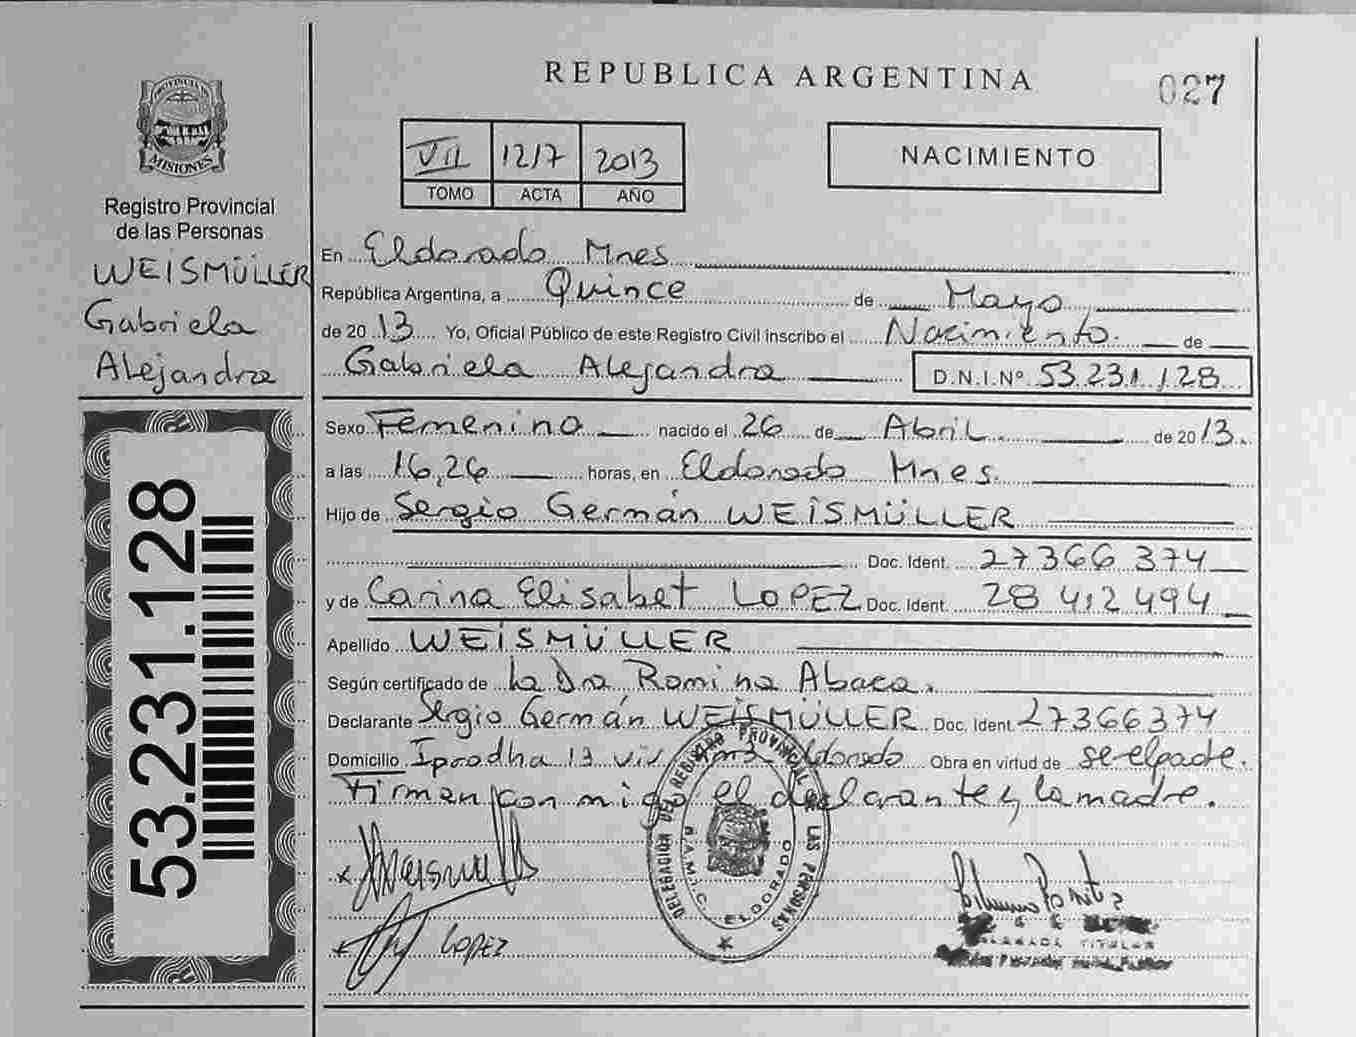 REPUBLICA ARGENTINA
027
PROVINCIA DE
MISIONES
Registro Provincial
de las Personas
WEISMÜLLER
Gabriela
Alejandra
53.231.128
VII 1217 2013
TOMO ACTA AÑO
NACIMIENTO
En Eldorado Mnes
República Argentina, a Quince de Mayo
de 2013 Yo, Oficial Público de este Registro Civil inscribo el Nacimiento de
Gabriela Alejandra D.N.I.Nº 53.231.128
Sexo Femenino nacido el 26 de Abril de 2013
a las 16,26 horas, en Eldorado Mnes.
Hijo de Sergio Germán WEISMÜLLER
Doc. Ident. 27366374
y de Carina Elisabet LOPEZ Doc. Ident. 28412494
Apellido WEISMÜLLER
Según certificado de La Dra Romina Abaca.
Declarante Sergio Germán WEISMÜLLER Doc. Ident 27366374
Domicilio Iprodha 13 viv Eldorado Obra en virtud de se el padre.
Firman conmigo el declarante y la madre.
DELEGACION DEL REGISTRO PROVINCIAL DE LAS PERSONAS
ELDORADO
LOPEZ
TITULAR